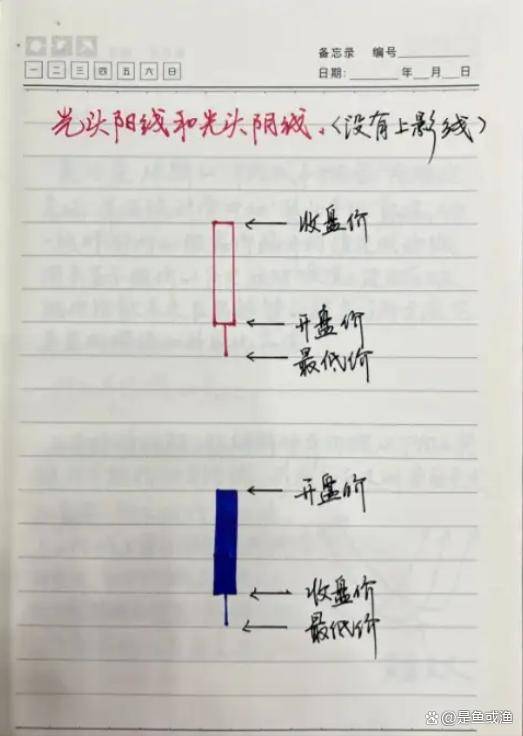 备忘录 编号
一 二 三 四 五 六 日
日期: 年 月 日
光头阳线和光头阴线.(没有上影线)
← 收盘价
← 开盘价
← 最低价
← 开盘价
← 收盘价
← 最低价
@是鱼或渔